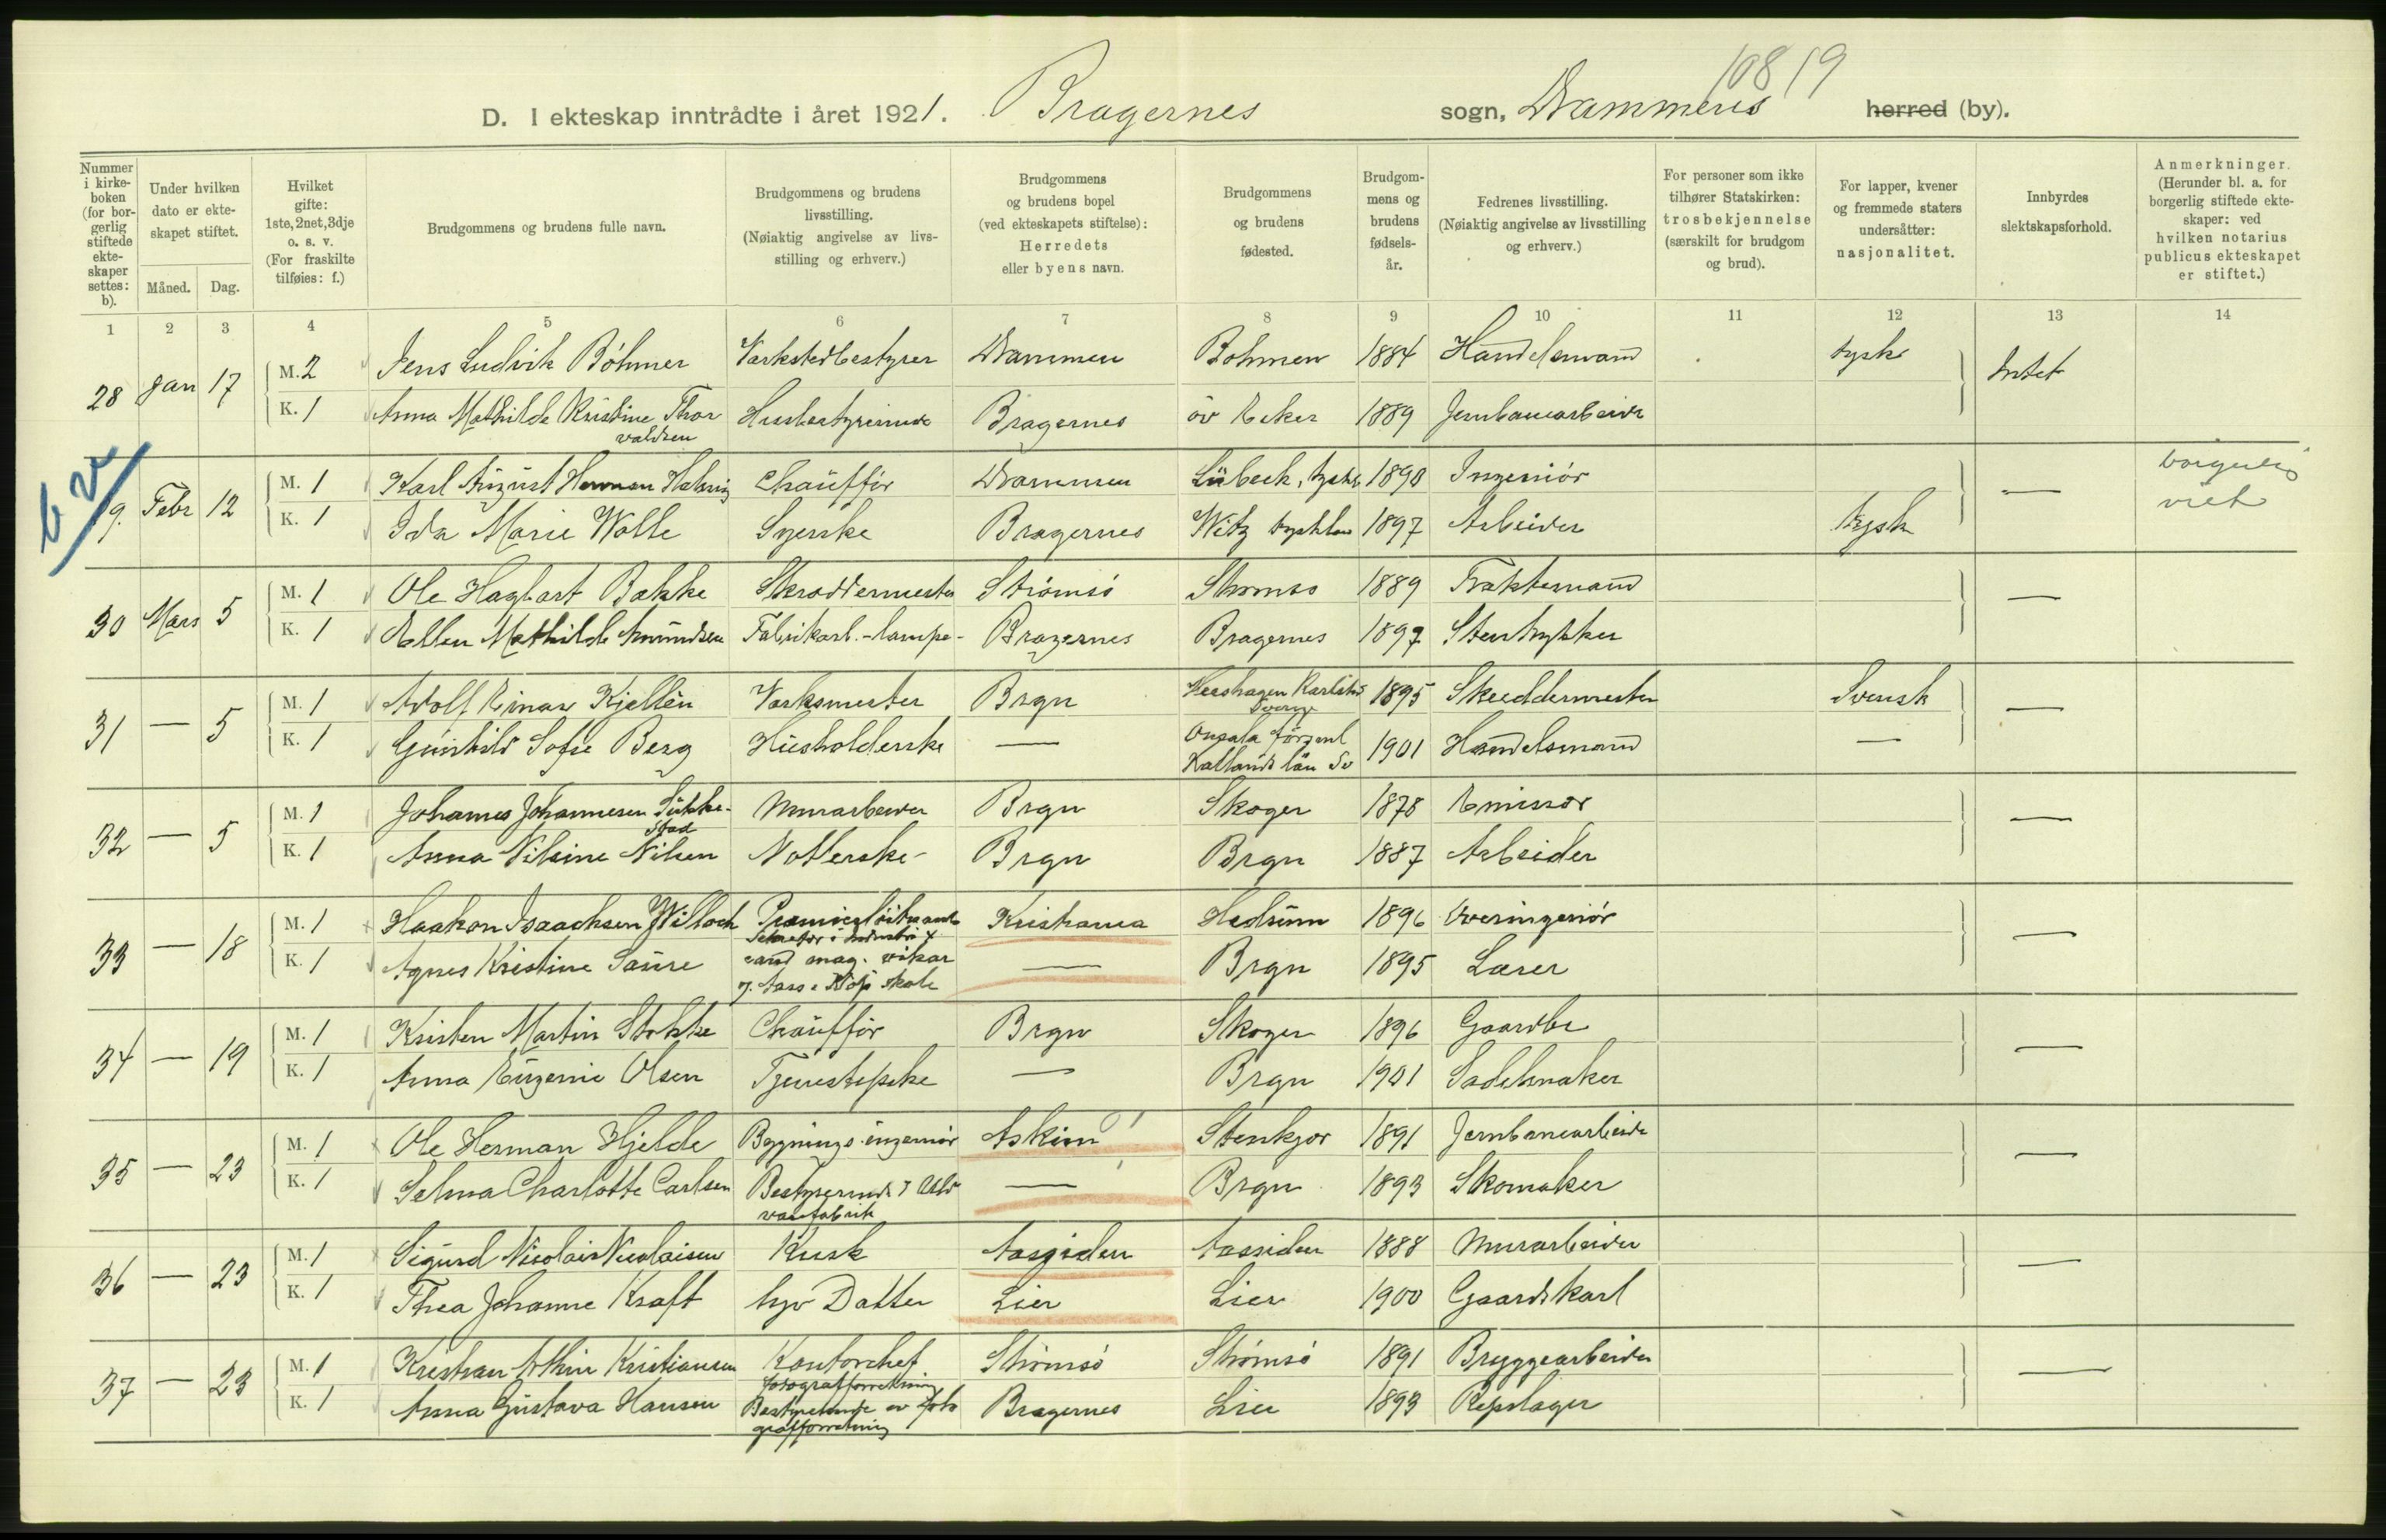 10819
D. I ekteskap inntrådte i året 1921. Bragernes sogn, Drammens herred (by).
Nummer i kirkeboken (for borgerlig stiftede ekteskaper settes: b).
Under hvilken dato er ekteskapet stiftet.
Måned. Dag.
Hvilket gifte: 1ste, 2net, 3dje o. s. v. (For fraskilte tilføies: f.)
Brudgommens og brudens fulle navn.
Brudgommens og brudens livsstilling. (Nøiaktig angivelse av livsstilling og erhverv.)
Brudgommens og brudens bopel (ved ekteskapets stiftelse): Herredets eller byens navn.
Brudgommens og brudens fødested.
Brudgommens og brudens fødselsår.
Fedrenes livsstilling. (Nøiaktig angivelse av livsstilling og erhverv.)
For personer som ikke tilhører Statskirken: trosbekjennelse (særskilt for brudgom og brud).
For lapper, kvener og fremmede staters undersåtter: nasjonalitet.
Innbyrdes slektskapsforhold.
Anmerkninger. (Herunder bl. a. for borgerlig stiftede ekteskaper: ved hvilken notarius publicus ekteskapet er stiftet.)
1 2 3 4 5 6 7 8 9 10 11 12 13 14
28 Jan 17 M. 2 Jens Ludvik Böhmer Verkstedbestyrer Drammen Bohmen 1884 Handelsmand tysk Intet
K. 1 Anna Mathilde Kristine Thorvaldsen Husbestyrerinde Bragernes öv Eker 1889 Jernbanearbeider
b 2
9. Febr 12 M. 1 Karl August Herman Chaufför Drammen Lübeck, tyskl. 1898 Ingeniör — borgerlig viet
K. 1 Ida Marie Wolle Syerske Bragernes Witz tyskland 1897 Arbeider tysk
30 Mars 5 M. 1 Ole Hagbart Bakke Skræddermester Strömsö Strömsö 1889 Fraktemand —
K. 1 Ellen Mathilde Amundsen Fabrikarb.-lampe- Bragernes Bragernes 1897 Stentrykker
31 — 5 M. 1 Adolf Einar Kjellén Verksmester Brgn Karlstad Sverge 1895 Skreddermester Svensk —
K. 1 Gunhild Sofie Berg Husholderske — Onsala Hallands län Sv 1901 Handelsmand —
32 — 5 M. 1 Johannes Johannesen Murarbeider Brgn Skoger 1878 Emissær —
K. 1 Anna Nilsine Nilsen Notlerske- Brgn Brgn 1887 Arbeider
33 — 18 M. 1 Haakon Isaachsen Willoch Premierlöitnant Sekretær i Industri Kristiania Hedrum 1896 Overingeniör —
K. 1 Agnes Kristine Saure cand mag. vikar v. Aars & skole — Brgn 1895 Lærer
34 — 19 M. 1 Kristen Martin Stokke Chaufför Brgn Skoger 1896 Gaardbr —
K. 1 Anna Eugenie Olsen Tjenestepike — Brgn 1901 Sadelmaker
35 — 23 M. 1 Ole Herman Hjelde Bygningsingeniör Askim Stenkjær 1891 Jernbanearbeider —
K. 1 Selma Charlotte Carlsen Bestyrerinde varefabrik — Brgn 1893 Skomaker
36 — 23 M. 1 Sigurd Nicolai Nicolaisen Kusk Aassiden Aassiden 1888 Murarbeider —
K. 1 Thea Johanne Kraft hjv Datter Lier Lier 1900 Gaardskarl
37 — 23 M. 1 Kristian Arthur Kristiansen Kontorchef fotografforretning Strömsö Strömsö 1891 Bryggearbeider —
K. 1 Anna Gustava Hansen Bestyrerinde av fotografforretning Bragernes Lier 1893 Repslager